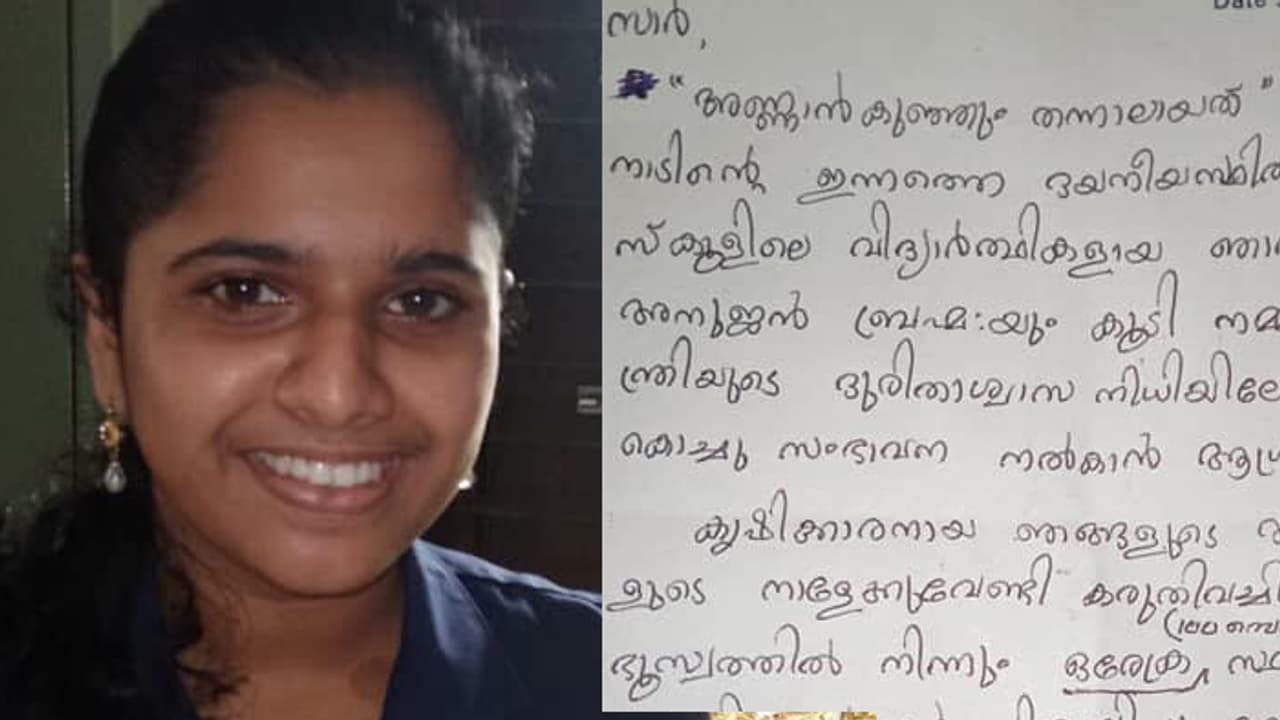 Date
സാർ,
" അണ്ണാൻകുഞ്ഞും തന്നാലായത് "
നാടിന്റെ ഇന്നത്തെ ദയനീയസ്ഥിതി
സ്കൂളിലെ വിദ്യാർത്ഥികളായ
അനുജൻ ബ്രഹ്മ:യും കൂടി
ന്ത്രിയുടെ ദുരിതാശ്വാസ നിധിയിലേ
കൊച്ചു സംഭാവന നൽകാൻ ആഗ്ര
കൃഷിക്കാരനായ ഞങ്ങളുടെ
ളുടെ നാളേക്കുവേണ്ടി കരുതിവച്ചി
ഭൂസ്വത്തിൽ നിന്നും ഒരേക്ര